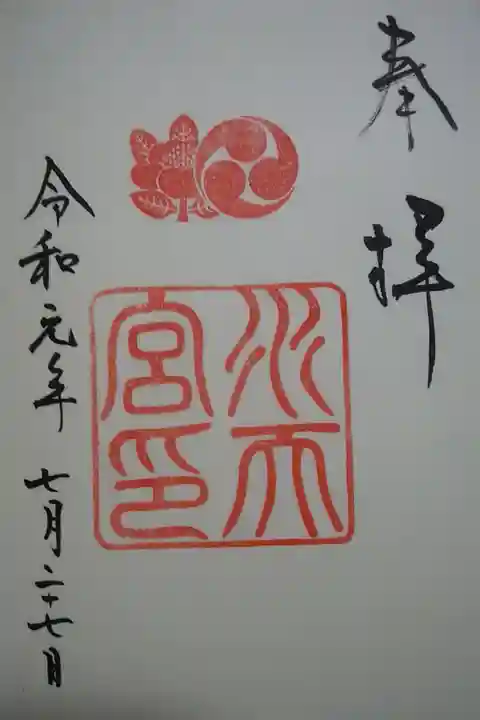 奉拝
水天
宮印
令和元年 七月二十七日